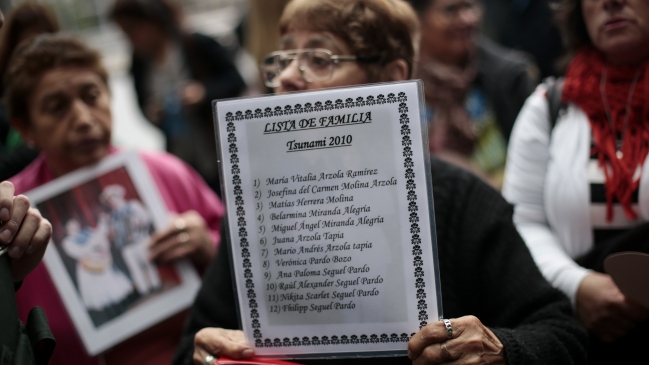 LISTA DE FAMILIA
Tsunami 2010
1) María Vitalia Arzola Ramírez
2) Josefina del Carmen Molina Arzola
3) Matías Herrera Molina
4) Belarmina Miranda Alegría
5) Miguel Ángel Miranda Alegría
6) Juana Arzola Tapia
7) Mario Andrés Arzola tapia
8) Verónica Pardo Bozo
9) Ana Paloma Seguel Pardo
10) Raúl Alexander Seguel Pardo
11) Nikita Scarlet Seguel Pardo
12) Philipp Seguel Pardo